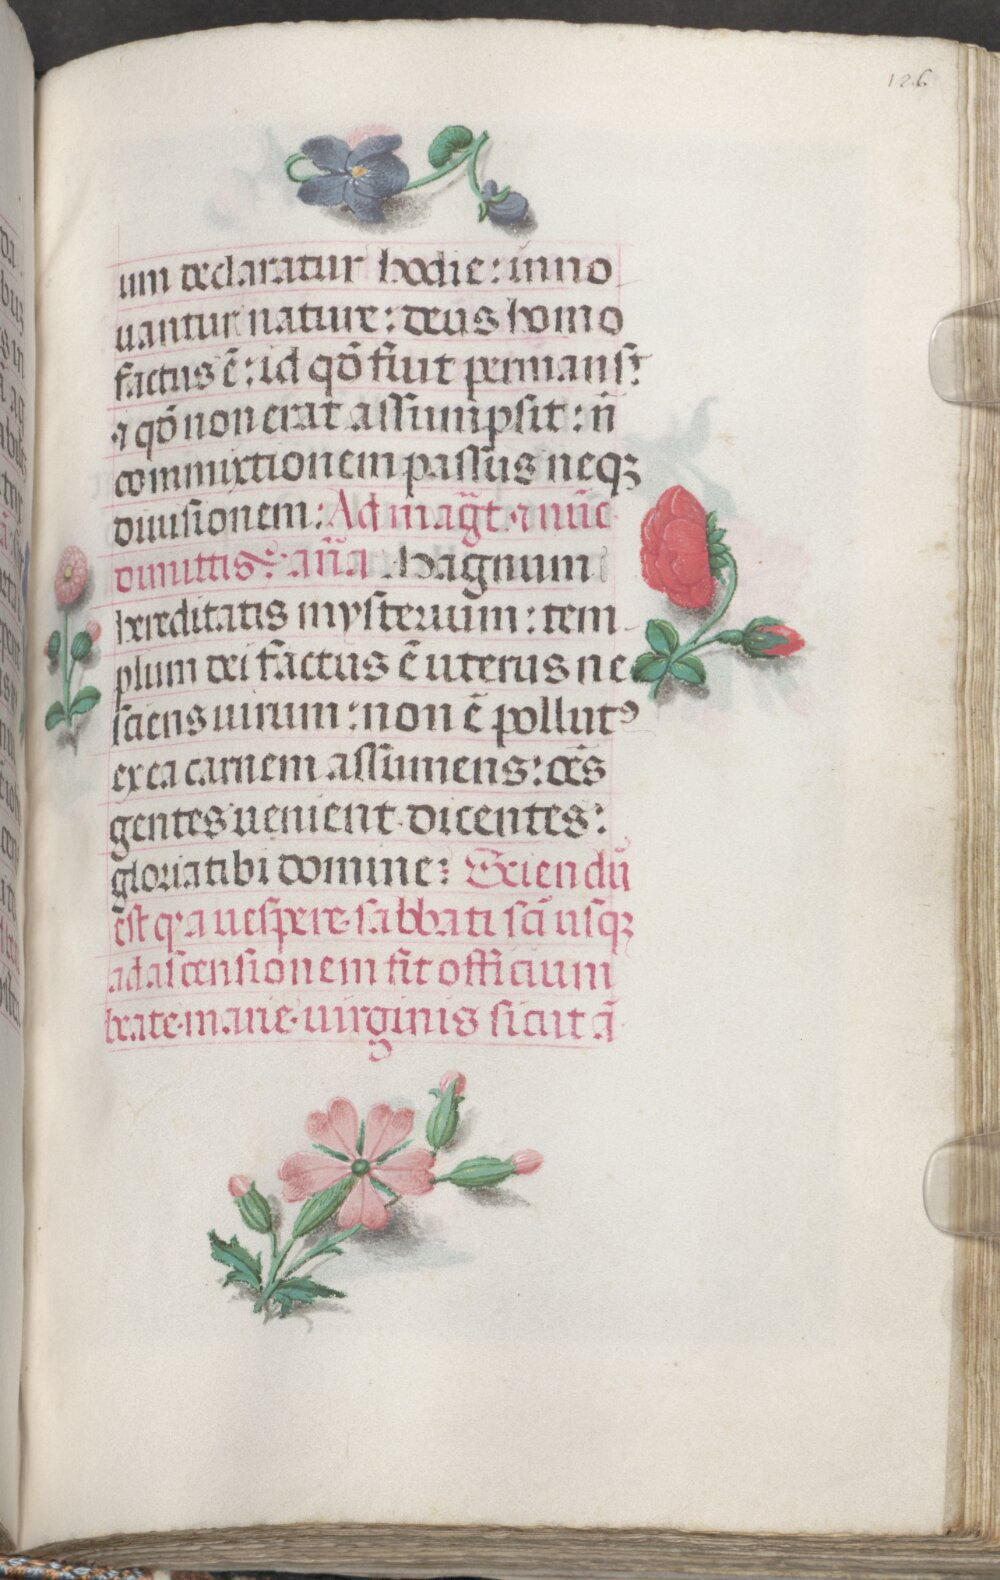 126
um declaratur hodie: inno
uantur nature: deus homo
factus ē: id qd̄ fuit permansit
⁊ qd̄ non erat assumpsit: nō
commixtionem passus neqꝫ
diuisionem: Ad magt̄. ⁊ nūc
dimittis: an̄a. Magnum
hereditatis mysterium: tem
plum dei factus ē uterus ne
sciens uirum: non ē pollutꝰ
ex ea carnem assumens: oēs
gentes uenient dicentes:
gloria tibi domine: Sciendū
est qꝫ a uespere sabbati scī usqꝫ
ad ascensionem fit officium
beate marie uirginis sicut ā